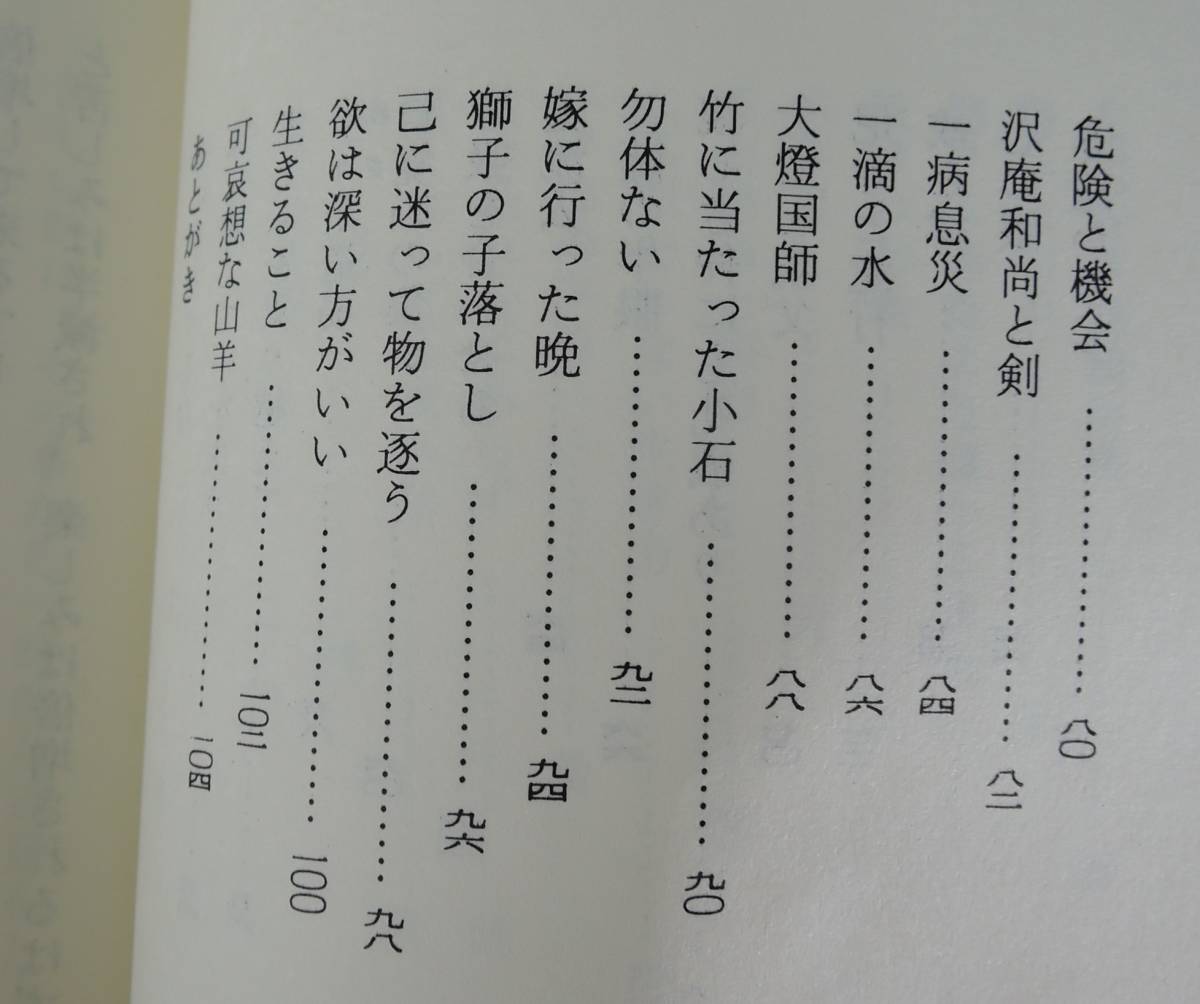 危険と機会……………………八〇
沢庵和尚と剣……………………八二
一病息災……………………八四
一滴の水……………………八六
大燈国師……………………八八
竹に当たった小石……………………九〇
勿体ない……………………九二
嫁に行った晩……………………九四
獅子の子落とし……………………九六
己に迷って物を逐う……………………九八
欲は深い方がいい……………………一〇〇
生きること……………………一〇二
可哀想な山羊……………………一〇四
あとがき